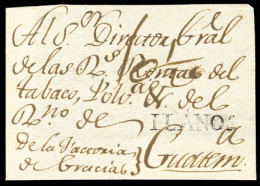 Al Sr. Director Gral
de las Rs. Rentas del
tabaco, Polva. &. del
Rno. de
LLANOS
Guatema.
de la Factoria
de Gracias